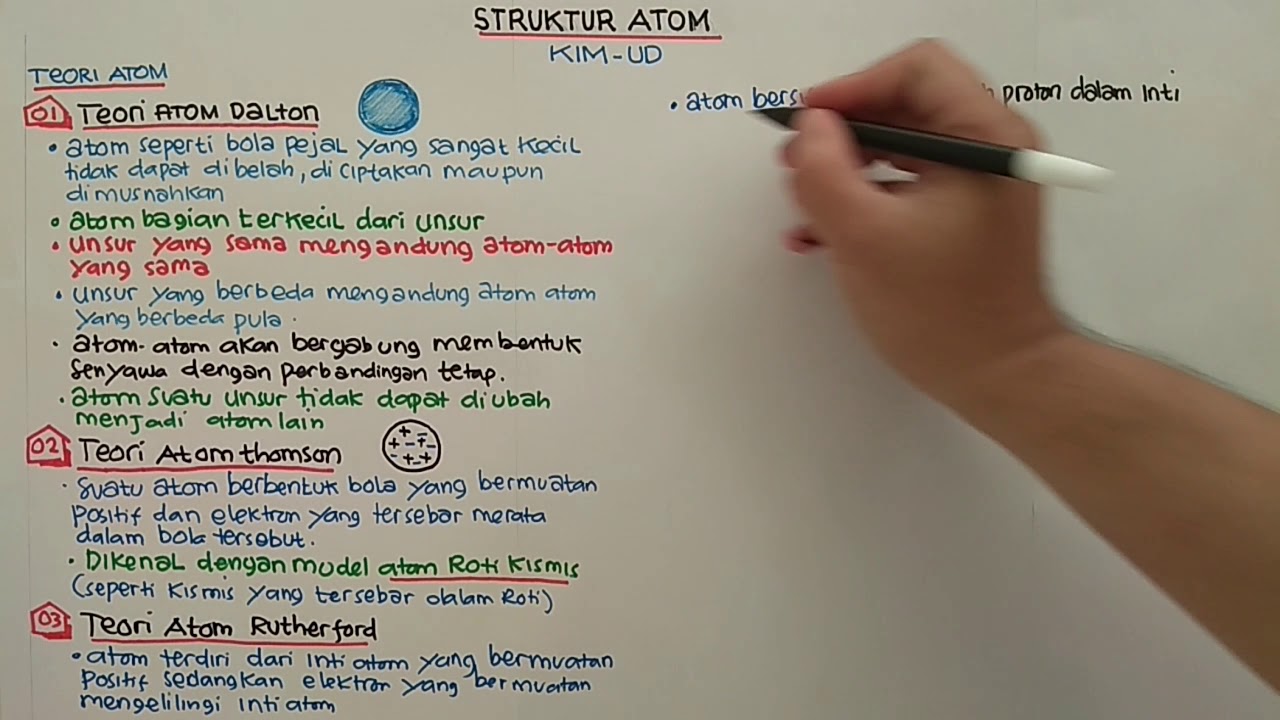 STRUKTUR ATOM
KIM-UD
TEORI ATOM
01 Teori ATOM Dalton
• atom seperti bola pejal yang sangat kecil
tidak dapat dibelah, diciptakan maupun
dimusnahkan
• atom bagian terkecil dari unsur
• unsur yang sama mengandung atom-atom
yang sama
• unsur yang berbeda mengandung atom atom
yang berbeda pula.
• atom-atom akan bergabung membentuk
senyawa dengan perbandingan tetap.
• atom suatu unsur tidak dapat diubah
menjadi atom lain
02 Teori Atom thomson
• suatu atom berbentuk bola yang bermuatan
positif dan elektron yang tersebar merata
dalam bola tersebut.
• Dikenal dengan model atom Roti Kismis
(seperti kismis yang tersebar dalam Roti)
03 Teori Atom Rutherford
• atom terdiri dari inti atom yang bermuatan
positif sedangkan elektron yang bermuatan
mengelilingi inti atom
• atom proton dalam inti